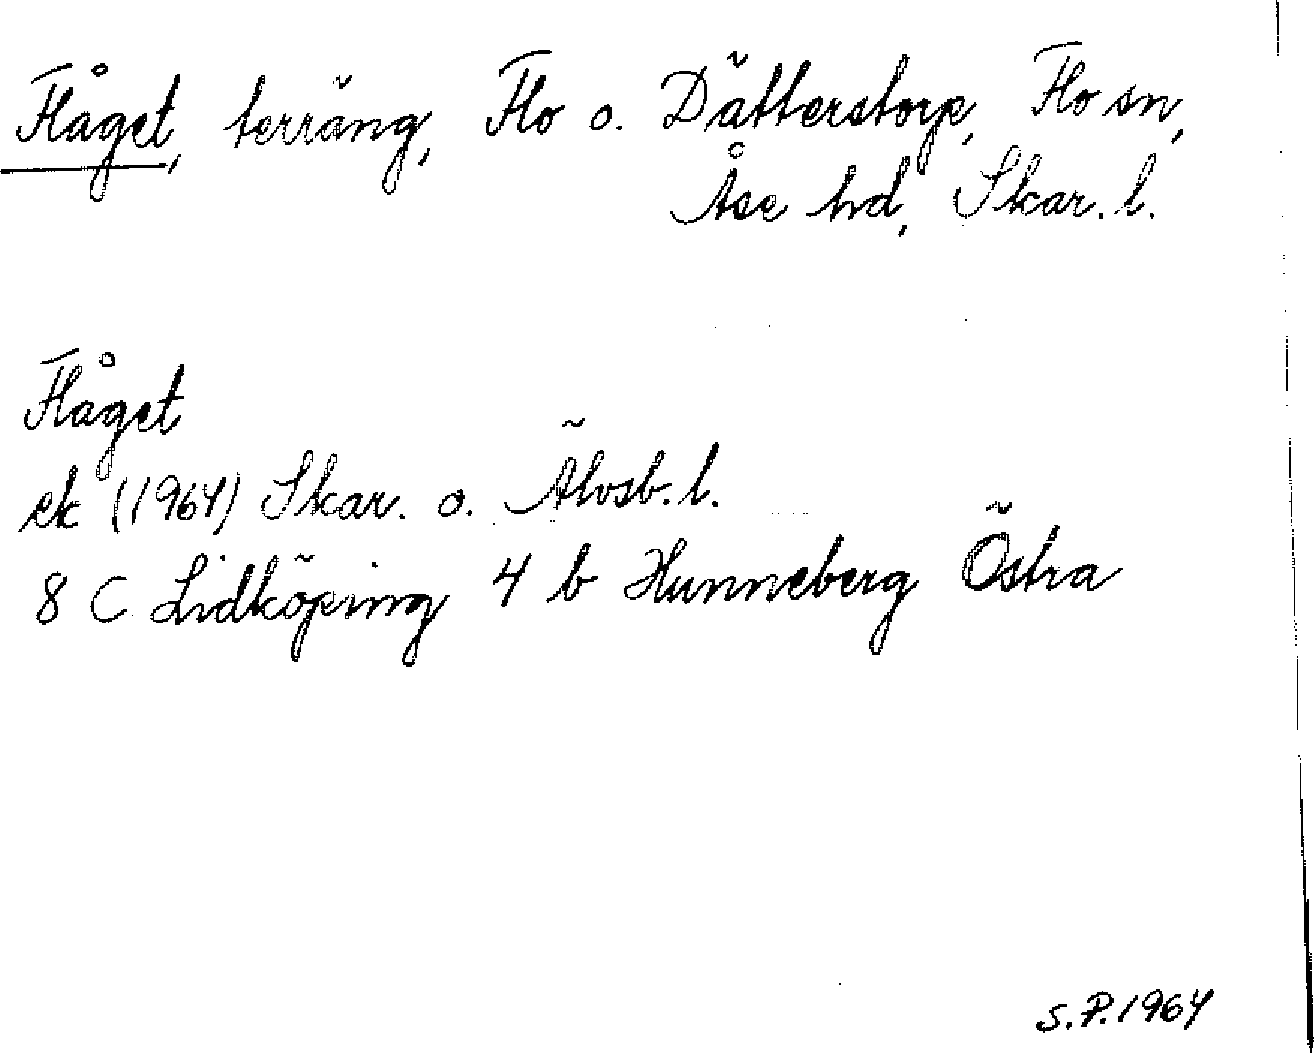 Flåget, terräng, Flo o. Dätterstorp, Flo sn,
Åse hd, Skar. l.
Flåget
ek (1964) Skar. o. Älvsb. l.
8 C Lidköping 4 b Hunneberg Östra
S.P. 1964